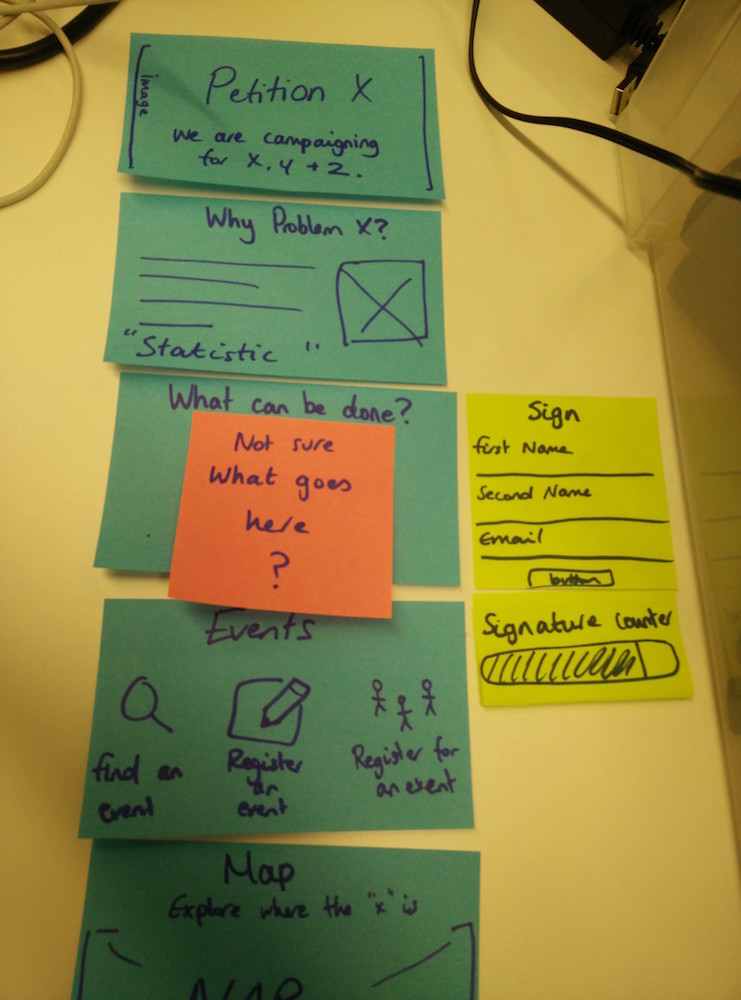 image
Petition X
We are campaigning
for X, Y + Z.
Why Problem X?
"Statistic "
What can be done?
Not sure
What goes
here
?
Sign
first Name
Second Name
Email
button
Signature counter
Events
find an
event
Register
an
event
Register for
an event
Map
Explore where the "x" is
MAP